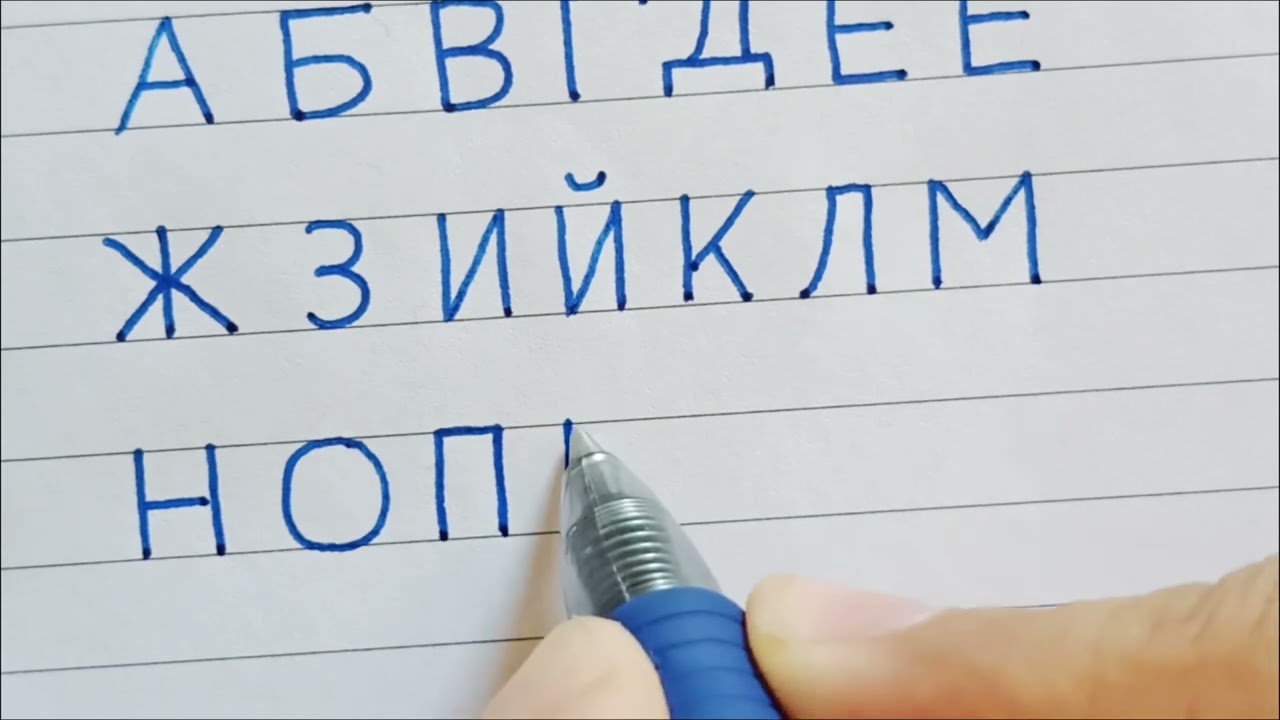 А Б В Г Д Е Е
Ж З И Й К Л М
Н О П